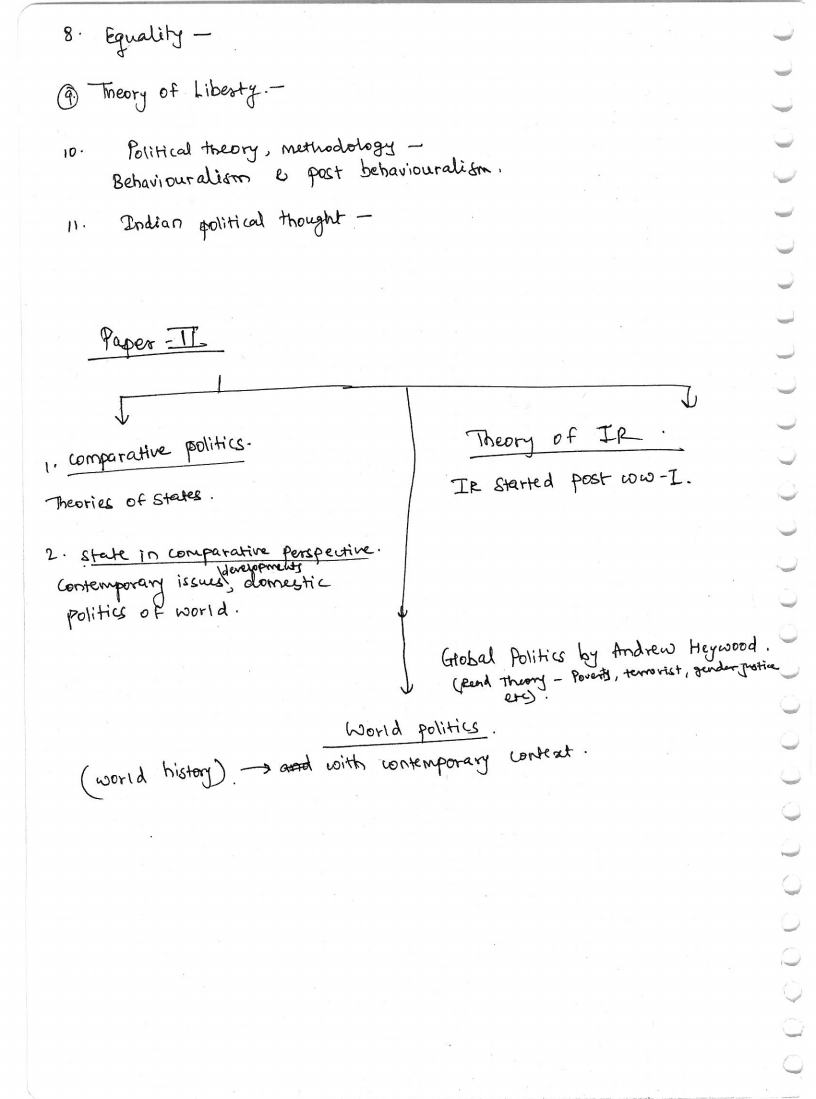 8. Equality —
9. Theory of Liberty. —
10. Political theory, methodology —
Behaviouralism & post behaviouralism.
11. Indian political thought —
Paper - II
1. Comparative politics.
Theories of States.
2. State in comparative perspective.
Contemporary issues, developments, domestic
politics of world.
Theory of IR.
IR started post WW-I.
Global Politics by Andrew Heywood.
(Read Theory - Poverty, terrorist, gender justice
etc).
World politics.
(world history). → and with contemporary context.